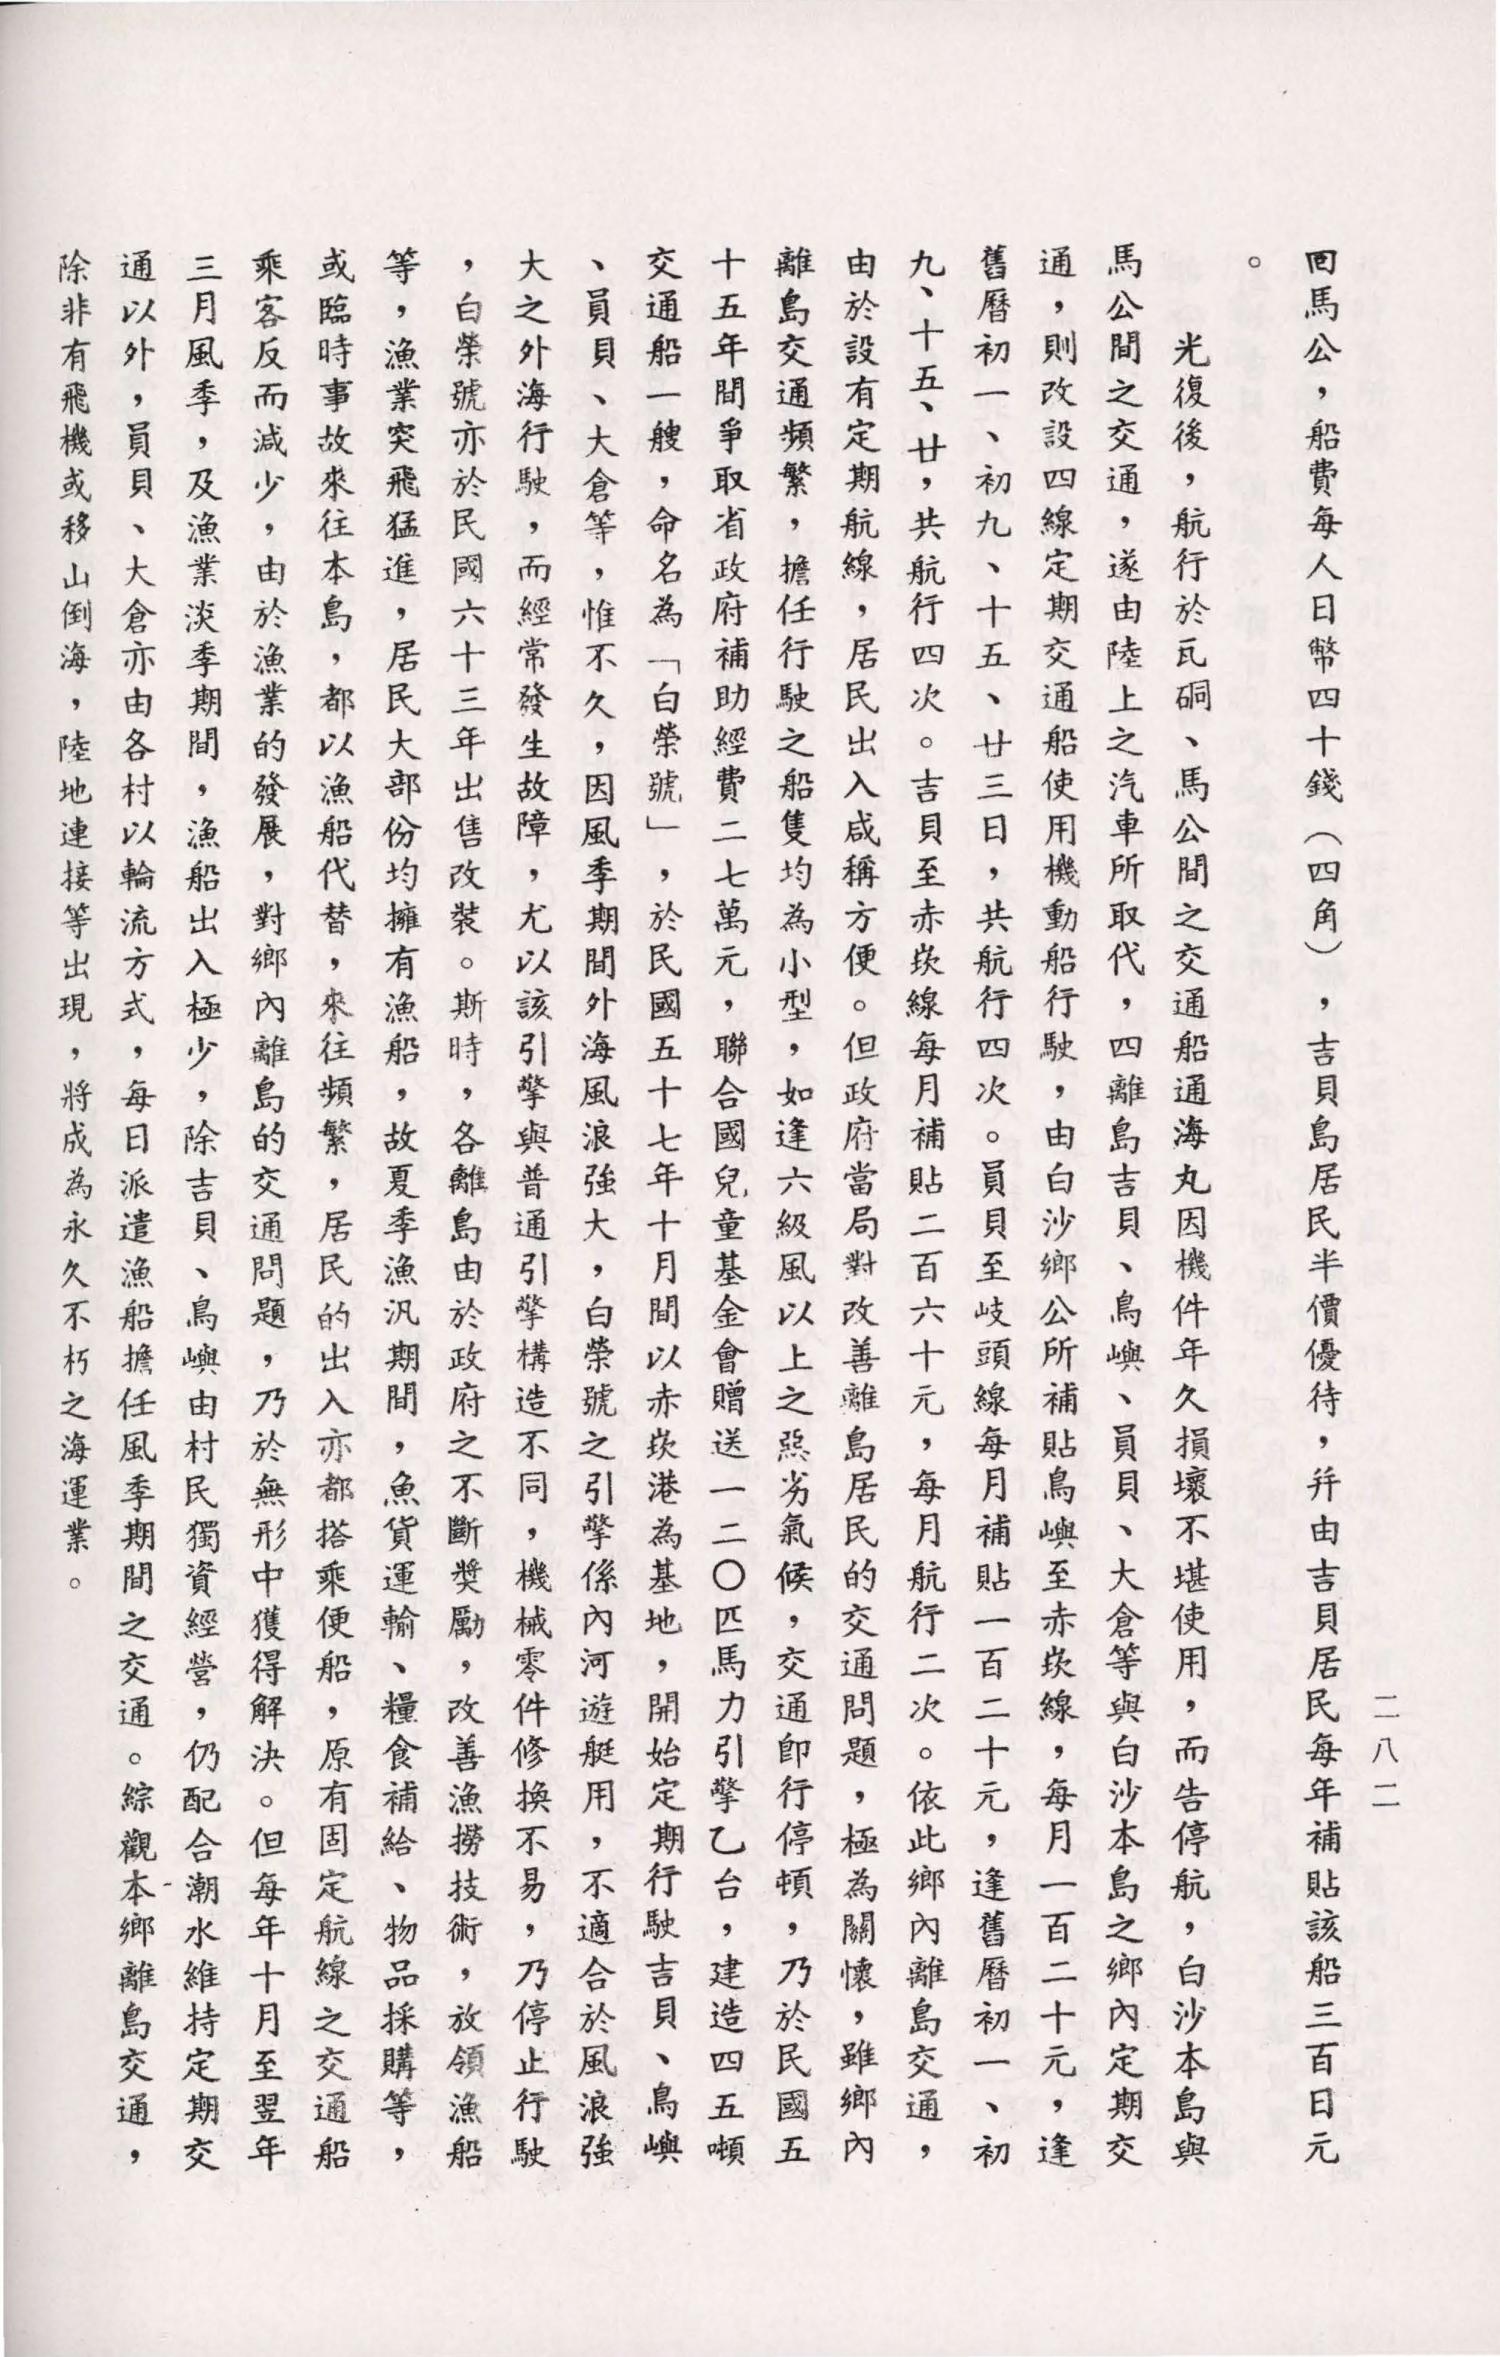 二八二
回馬公，船費每人日幣四十錢（四角），吉貝島居民半價優待，幷由吉貝居民每年補貼該船三百日元
。
光復後，航行於瓦硐、馬公間之交通船通海丸因機件年久損壞不堪使用，而告停航，白沙本島與
馬公間之交通，遂由陸上之汽車所取代，四離島吉貝、鳥嶼、員貝、大倉等與白沙本島之鄉內定期交
通，則改設四線定期交通船使用機動船行駛，由白沙鄉公所補貼鳥嶼至赤崁線，每月一百二十元，逢
舊曆初一、初九、十五、廿三日，共航行四次。員貝至岐頭線每月補貼一百二十元，逢舊曆初一、初
九、十五、廿，共航行四次。吉貝至赤崁線每月補貼二百六十元，每月航行二次。依此鄉內離島交通，
由於設有定期航線，居民出入咸稱方便。但政府當局對改善離島居民的交通問題，極為關懷，雖鄉內
離島交通頻繁，擔任行駛之船隻均為小型，如逢六級風以上之惡劣氣候，交通即行停頓，乃於民國五
十五年間爭取省政府補助經費二七萬元，聯合國兒童基金會贈送一二〇匹馬力引擎乙台，建造四五噸
交通船一艘，命名為「白榮號」，於民國五十七年十月間以赤崁港為基地，開始定期行駛吉貝、鳥嶼
、員貝、大倉等，惟不久，因風季期間外海風浪強大，白榮號之引擎係內河遊艇用，不適合於風浪強
大之外海行駛，而經常發生故障，尤以該引擎與普通引擎構造不同，機械零件修換不易，乃停止行駛
，白榮號亦於民國六十三年出售改裝。斯時，各離島由於政府之不斷獎勵，改善漁撈技術，放領漁船
等，漁業突飛猛進，居民大部份均擁有漁船，故夏季漁汛期間，魚貨運輸、糧食補給、物品採購等，
或臨時事故來往本島，都以漁船代替，來往頻繁，居民的出入亦都搭乘便船，原有固定航線之交通船
乘客反而減少，由於漁業的發展，對鄉內離島的交通問題，乃於無形中獲得解決。但每年十月至翌年
三月風季，及漁業淡季期間，漁船出入極少，除吉貝、鳥嶼由村民獨資經營，仍配合潮水維持定期交
通以外，員貝、大倉亦由各村以輪流方式，每日派遣漁船擔任風季期間之交通。綜觀本鄉離島交通，
除非有飛機或移山倒海，陸地連接等出現，將成為永久不朽之海運業。